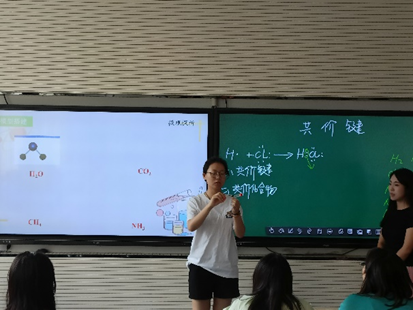 H₂O
CO₂
CH₄
NH₃
共价键
H· + ·Cl: → H:Cl:
共价键
共价化合物
H₂